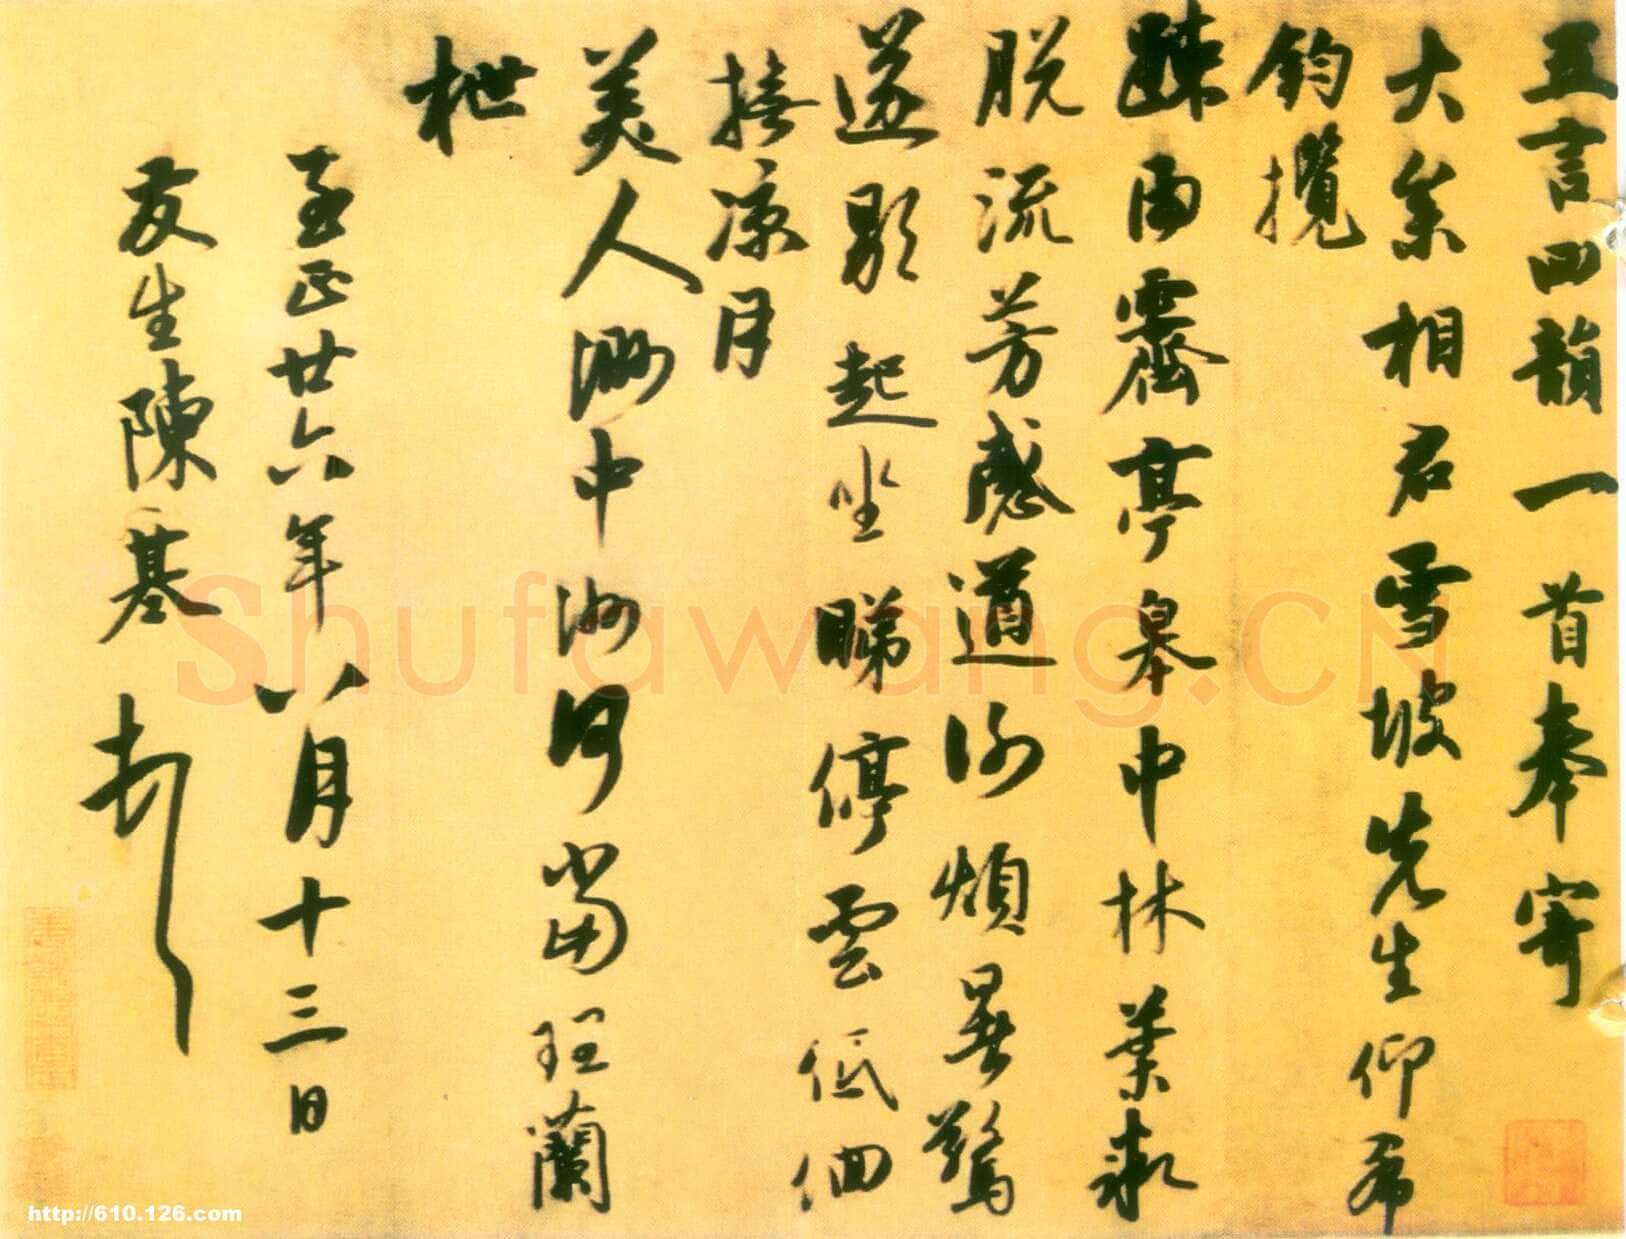 五言四韻一首奉寄
大參相君雪坡先生仰希
鈞攬
踈雨霽亭皋中林葉
脫流芳感遒謝煩暑驚
遂歇起坐睇停雲低佪
撫凉月
美人渺中洲何當理蘭
枻
至正廿六年八月十三日
友生陳基
Shufawang.CN
http://610.126.com